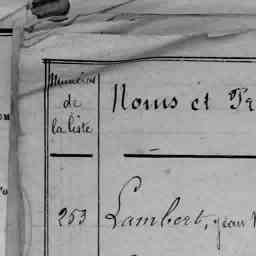 Numéros
de
la liste
Noms et Pr
253
Lambert, jean